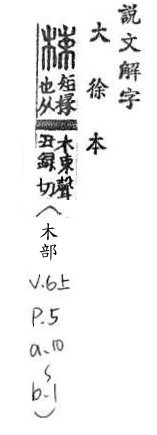 說文解字
大徐本
梀
短椽
也从
木束聲
丑録切
(木部
V.6上
P.5
a.10
~
b.1)